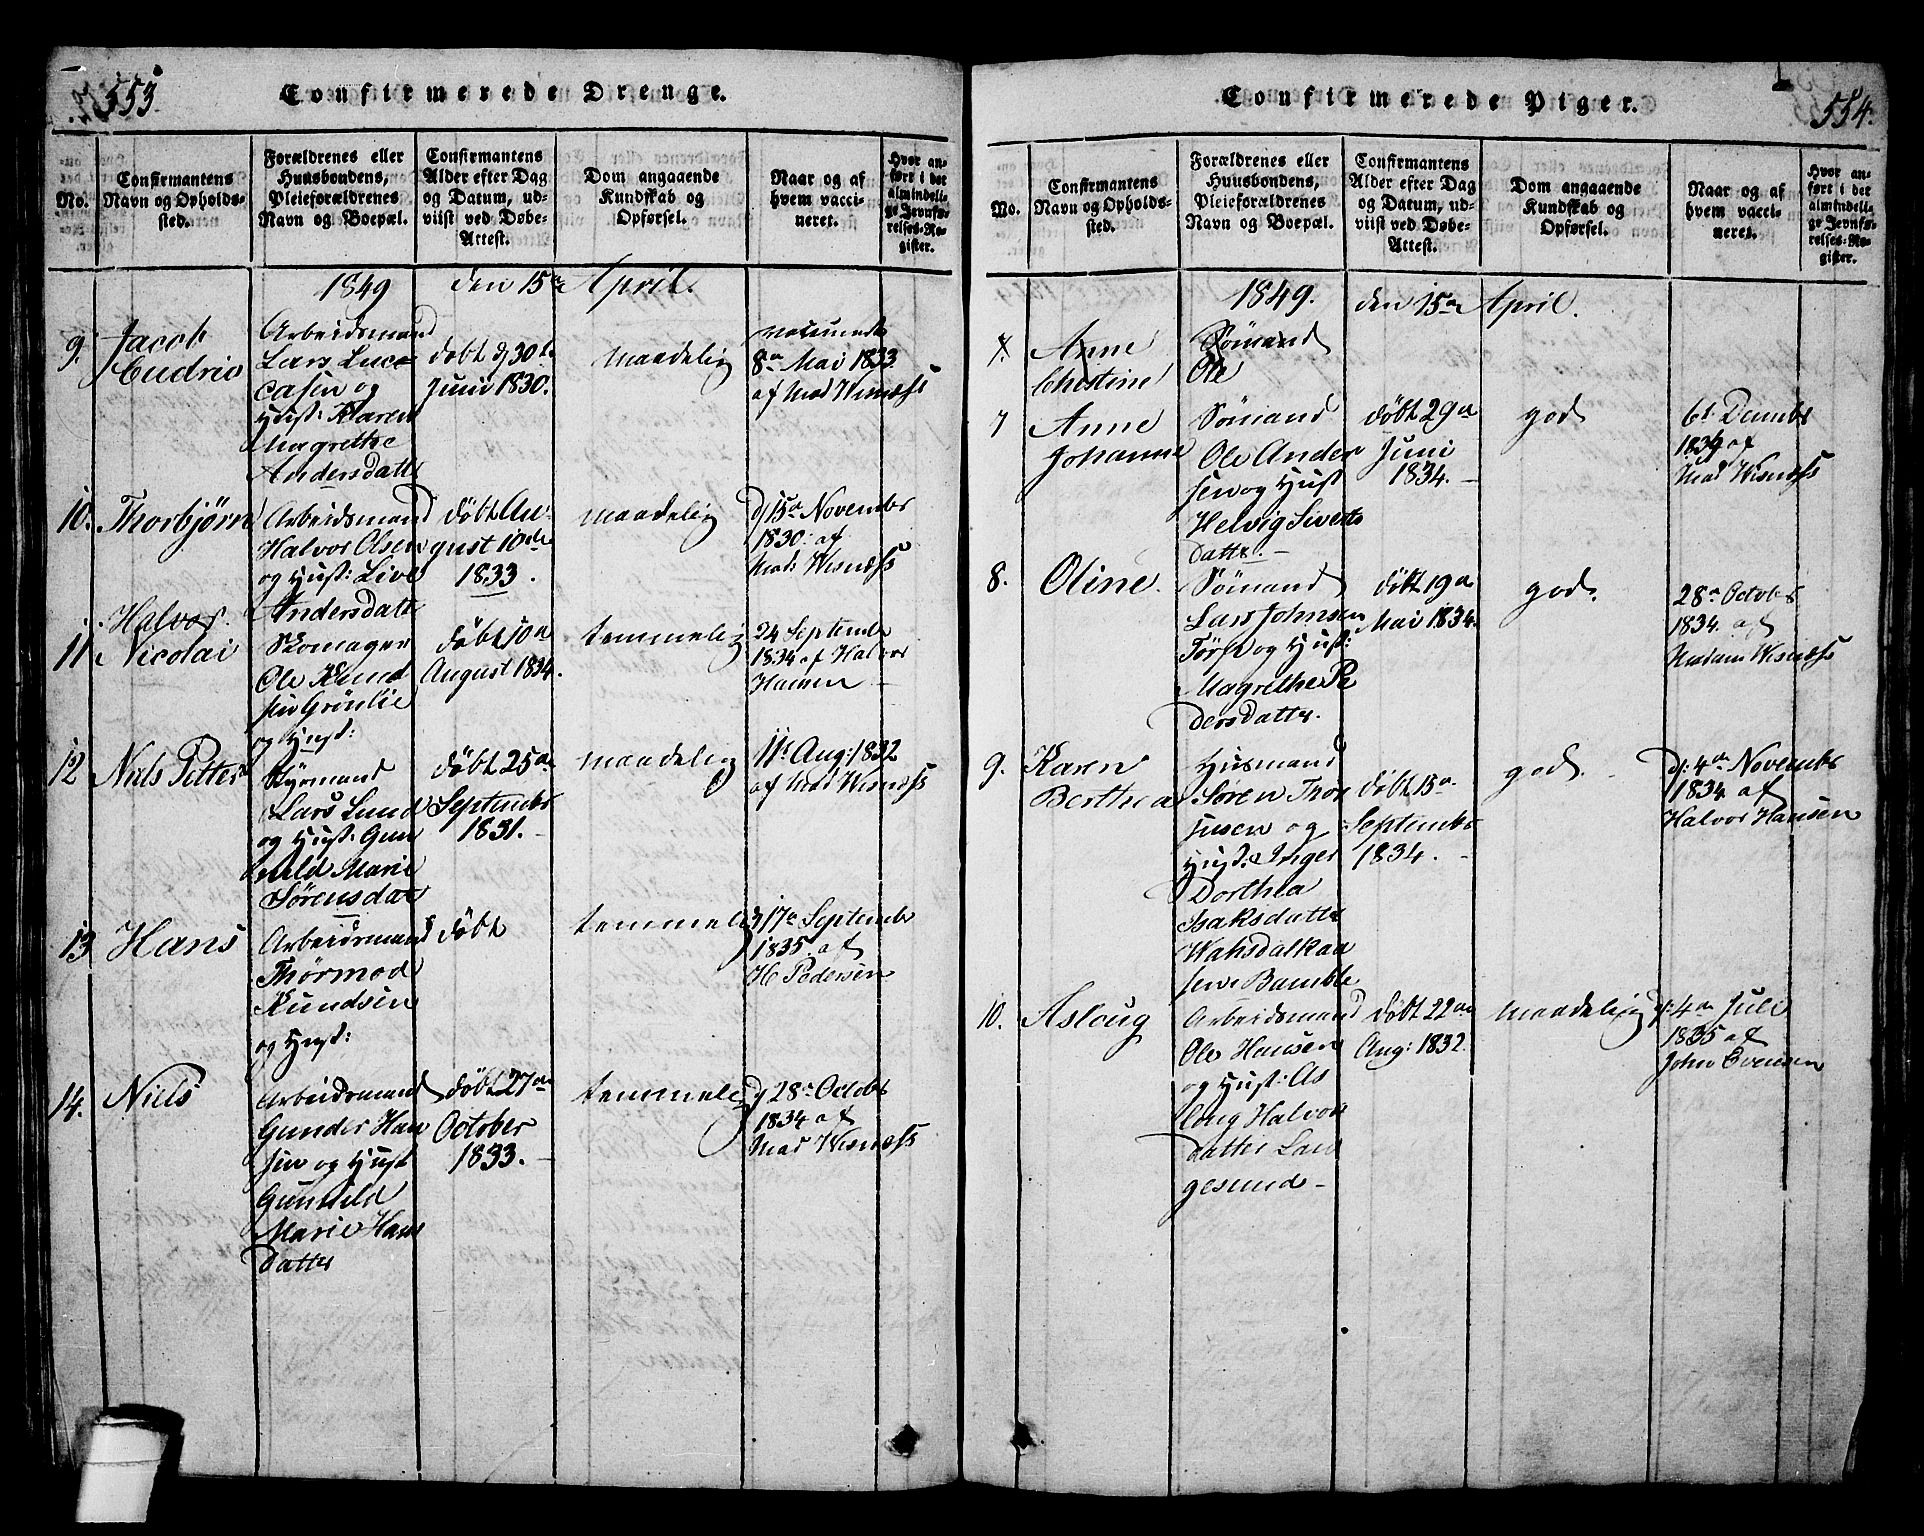 553.
Confirmerede Drenge.
No.
Confirmantens
Navn og Opholds-
sted.
Forældrenes eller
Huusbondens,
Pleieforældrenes
Navn og Boepæl.
Confirmantens
Alder efter Dag
og Datum, ud-
viist ved Døbe-
Attest.
Dom angaaende
Kundskab og
Opførsel.
Naar og af
hvem vacci-
neret.
Hvor an-
ført i det
almindeli-
ge Jevnfø-
relses-Re-
gister.
1849 den 15de April.
9. Jacob
Arbeidsmand
Lars Luca
casen og
Hust: Karen
Magrethe
Andersdatter
døbt d 30te
Juni 1830.
maadelig
vaccinerede
8de Mai 1833
af Mad Wisnæss
10. Thorbjørn
Arbeidsmand
Halvor Olsen
og Hust: Live
Andersdatter
døbt Au-
gust 10de
1833.
maadelig
d 15de Novembr
1830. af
Mad: Wisnæss
11. Halvor
Nicolai
Skomager
Ole Knud
sen Grønlie
og Hust:
døbt 10de
August 1834.
temmelig
24 Septembr
1834 af Halvor
Hansen
12 Niels Petter
Styrmand
Lars Lund
og Hust: Gun
hild Marie
Sørensdat
døbt 25de
Septembr
1831.
maadelig
11t Aug: 1832
af Mad Wisnæss
13 Hans
Arbeidsmand
Thormod
Knudsen
og Hust:
døbt
temmelig
d 17de Septembr
1835 af
H Pedersen
14. Niels
Arbeidsmand
Gunder Han
sen og Hust
Gunhild
Marie Hans
datter
døbt 27de
October
1833.
temmelig
d 28de Octobr
1834 af
Mad Wisnæss
554.
Confirmerede Piger.
No.
Confirmantens
Navn og Opholds-
sted.
Forældrenes eller
Huusbondens,
Pleieforældrenes
Navn og Boepæl.
Confirmantens
Alder efter Dag
og Datum, ud-
viist ved Døbe-
Attest.
Dom angaaende
Kundskab og
Opførsel.
Naar og af
hvem vacci-
neret.
Hvor an-
ført i det
almindeli-
ge Jevnfø-
relses-Re-
gister.
1849. den 15de April.
7. Anne
Christine
Sømand
Ole
7 Anne
Johanne
Sømand
Ole Ander
sen og Hust
Helvig Siverts
datter.
døbt 29de
Juni
1834.
god
6t Decembr
1834 af
Mad Wisnæss
8. Oline.
Sømand
Lars Johnsen
Tørsn og Hust:
Magrethe Pe
dersdatter.
døbt 19de
Mai 1834.
god.
28de Octobr
1834. af
Madam Wisnæss
9. Karen
Berthea
Husmand
Søren Thor
sen og
Hust: Inger
Dorthea
Isaksdatter
døbt 15de
Septembr
1834.
god.
d: 4de Novembr
1834 af
Halvor Hansen
Bamble
10. Asloug
Arbeidsmand
Ole Hansen
og Hust: As
loug Halvors
datter Lan
gesund
døbt 22de
Aug: 1832.
maadelig
d: 4de Juli
1835 af
John Evensen